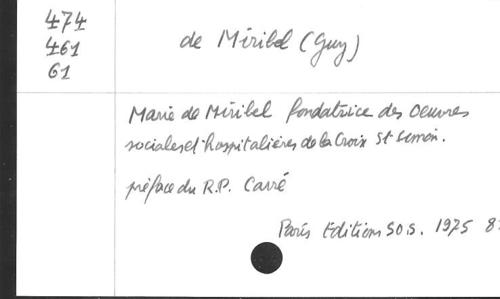 474
461
61
de Miribel (Guy)
Marie de Miribel fondatrice des Oeuvres
sociales et hospitalières de la Croix St Simon.
préface du R.P. Carré
Paris Editions S.O.S. 1975